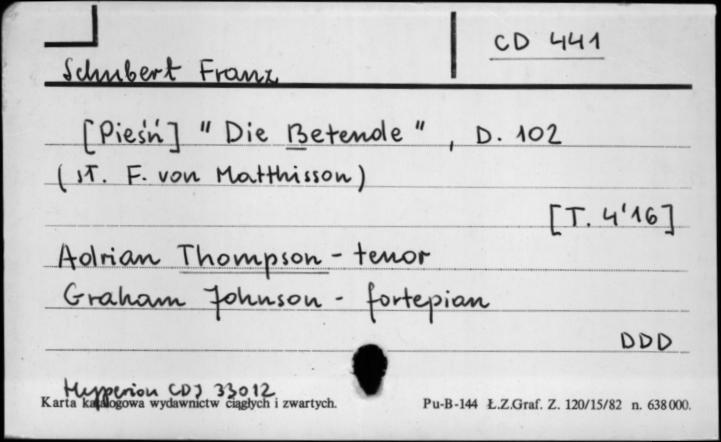 CD 441
Schubert Franz
[Pieśń] " Die Betende " , D. 102
(sł. F. von Matthisson)
[T. 4'16]
Adrian Thompson - tenor
Graham Johnson - fortepian
DDD
Hyperion CDJ 33012
Karta katalogowa wydawnictw ciągłych i zwartych.
Pu-B-144 Ł.Z.Graf. Z. 120/15/82 n. 638000.